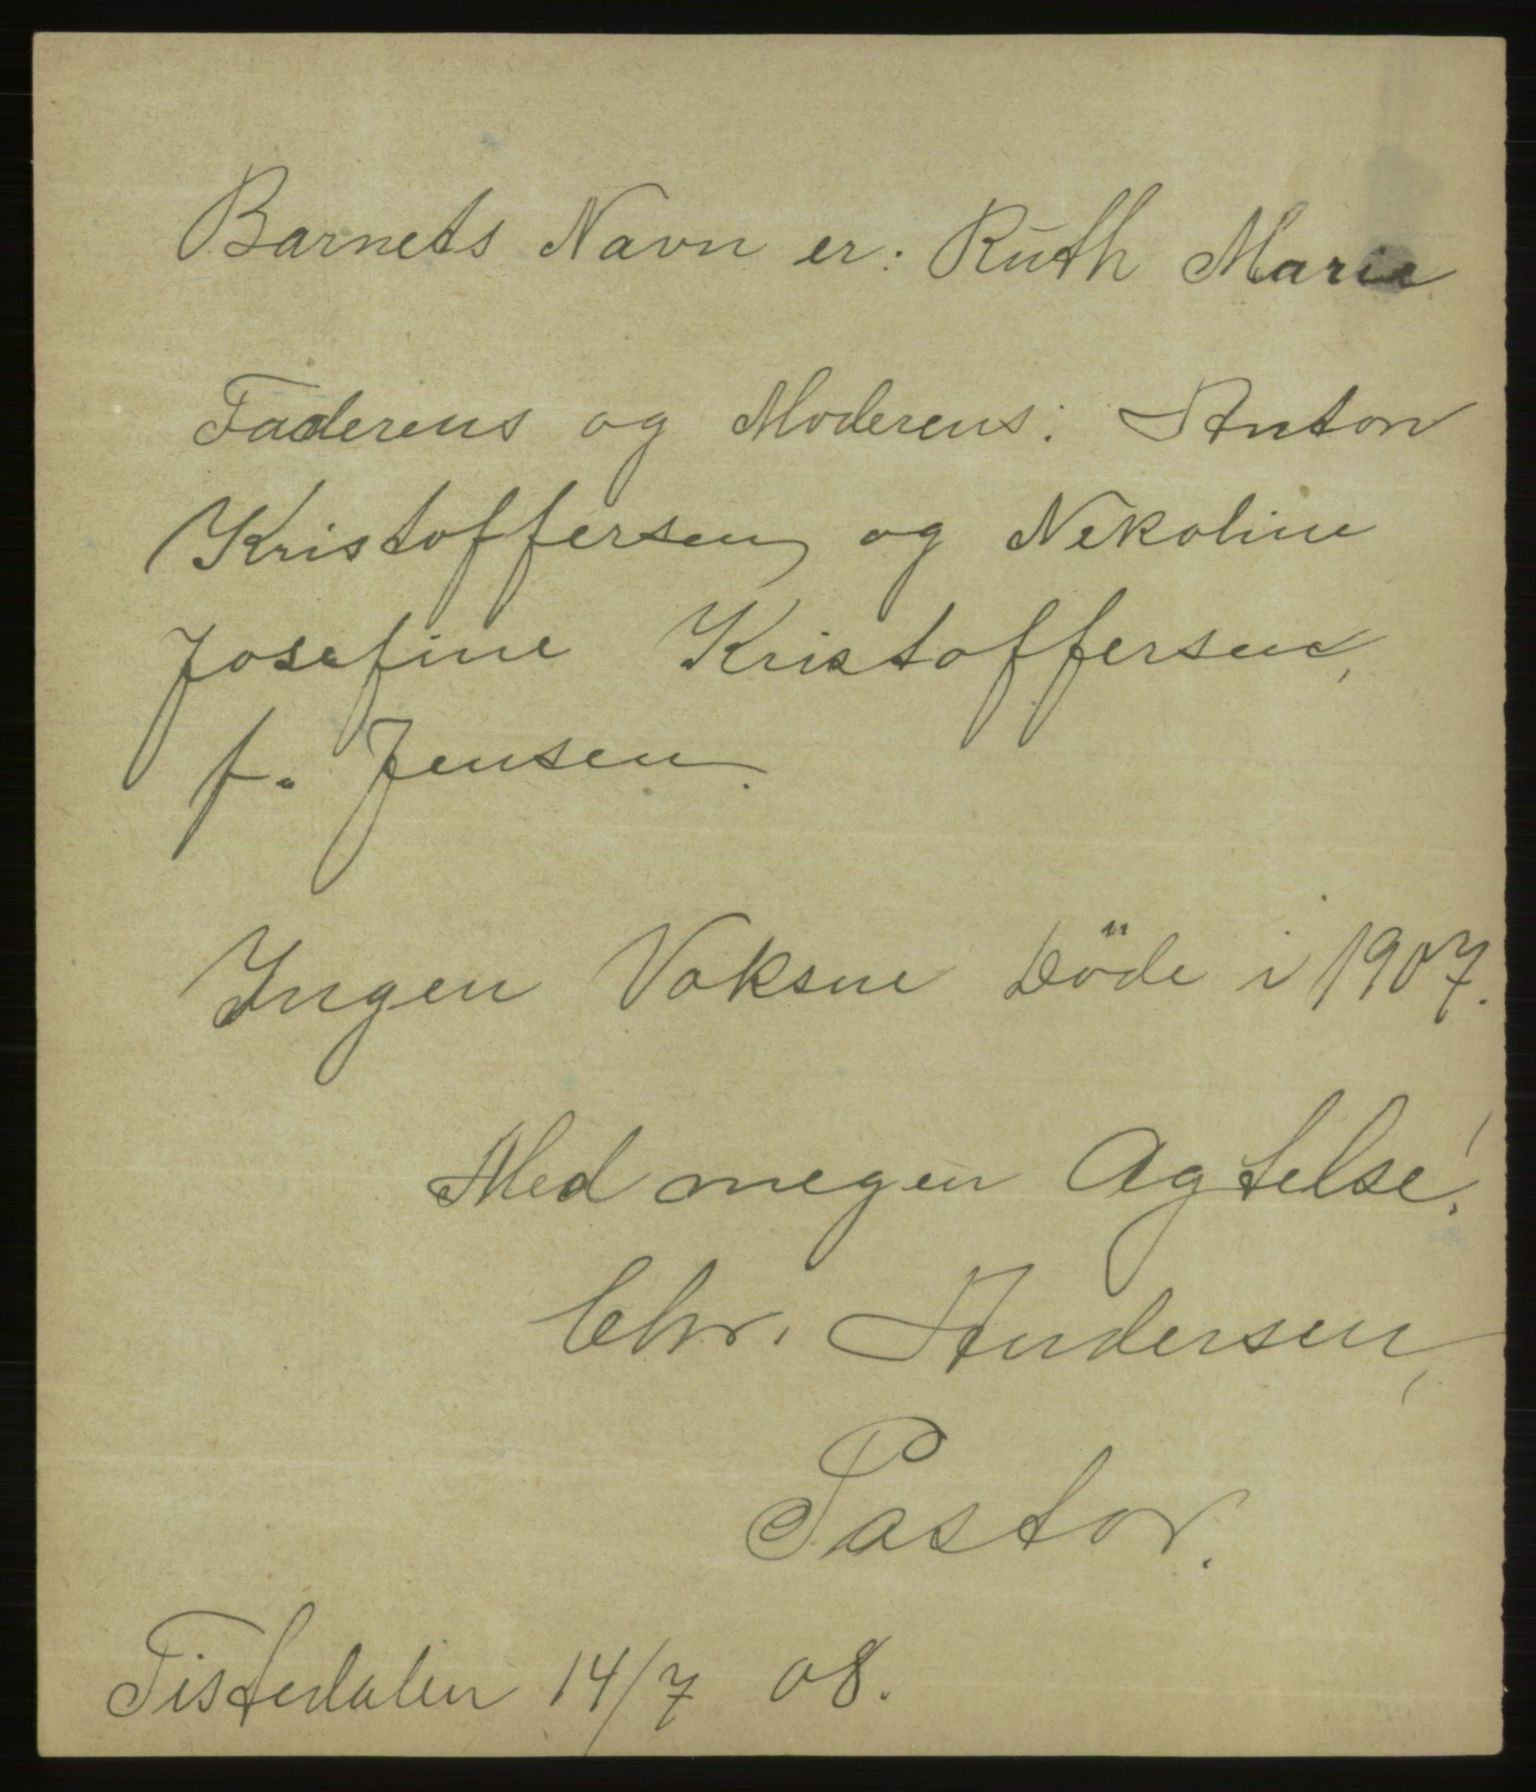 Barnets Navn er: Ruth Marie
Faderens og Moderens: Anton
Kristoffersen og Nekoline
Josefine Kristoffersen,
f. Jensen.
Ingen Voksne Döde i 1907.
Med megen Agtelse!
Chr. Andersen,
Pastor.
Tistedalen 14/7 08.